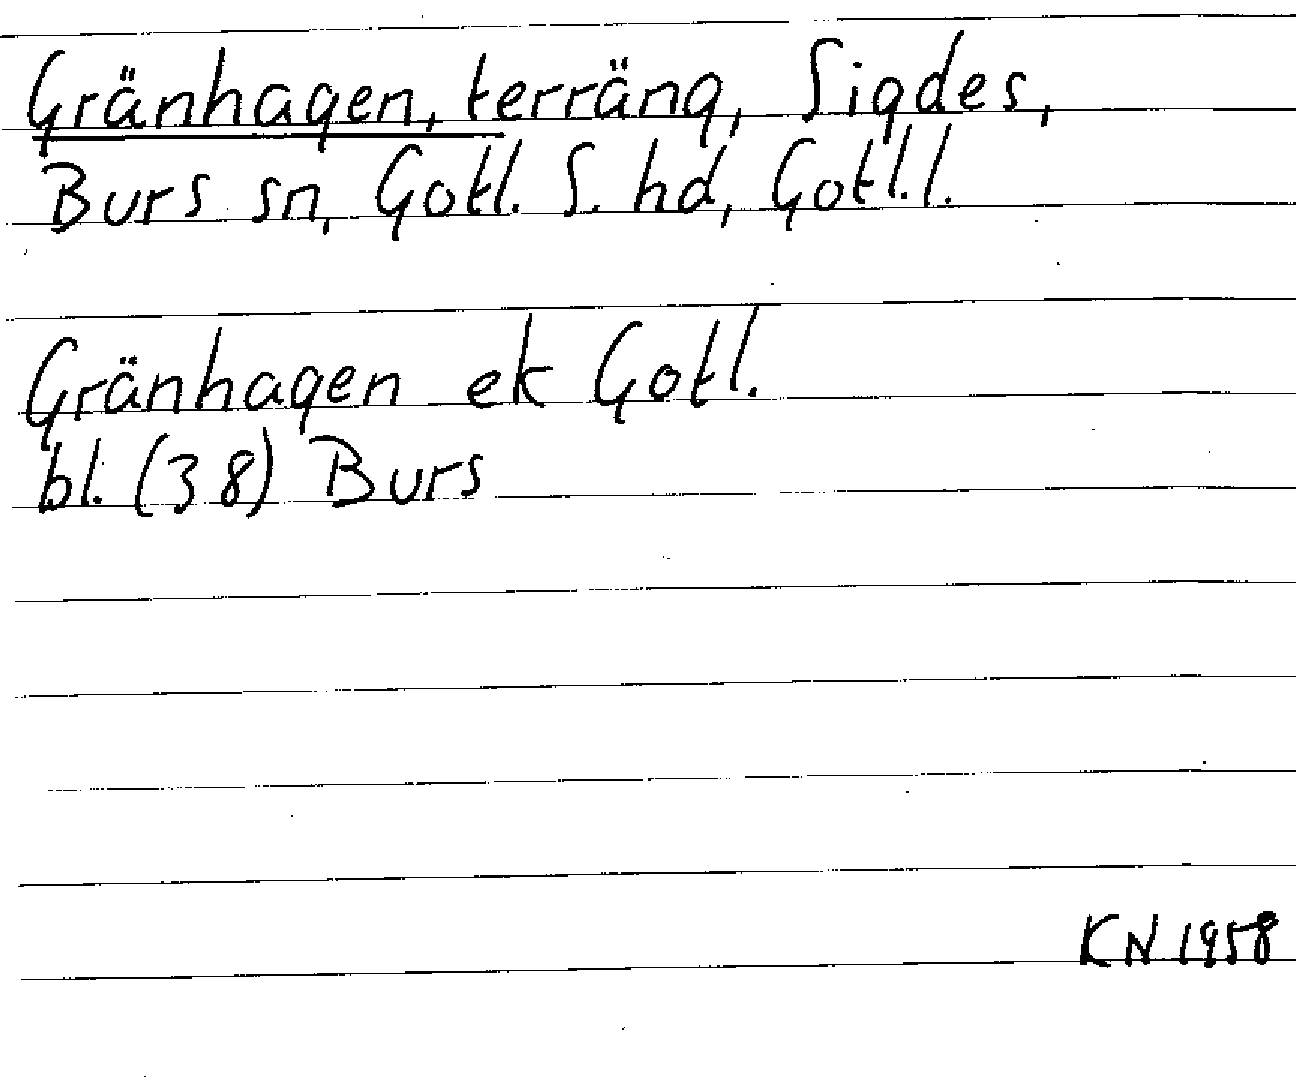 Gränhagen, terräng, Sigdes,
Burs sn, Gotl. S. hd, Gotl.l.
Gränhagen ek Gotl.
bl. (38) Burs
KN 1958